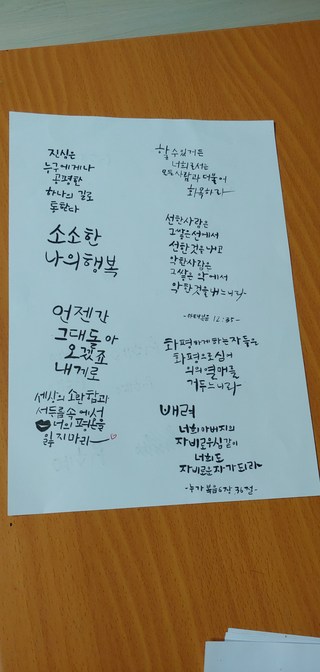 진심은
누구에게나
공평한
하나의 길로
통한다
소소한
나의 행복
언젠간
그대 돌아
오겠죠
내게로
세상의 소란함과
서두름 속에서
너의 평온을
잃지마라
할 수 있거든
너희로서는
모든 사람과 더불어
화목하라
선한 사람은
그 쌓은 선에서
선한 것을 내고
악한 사람은
그 쌓은 악에서
악한 것을 내느니라
-마태복음 12:35-
화평하게 하는 자들은
화평으로 심어
의의 열매를
거두느니라
배려
너희 아버지의
자비로우심 같이
너희도
자비로운 자가 되라
-누가복음 6장 36절-